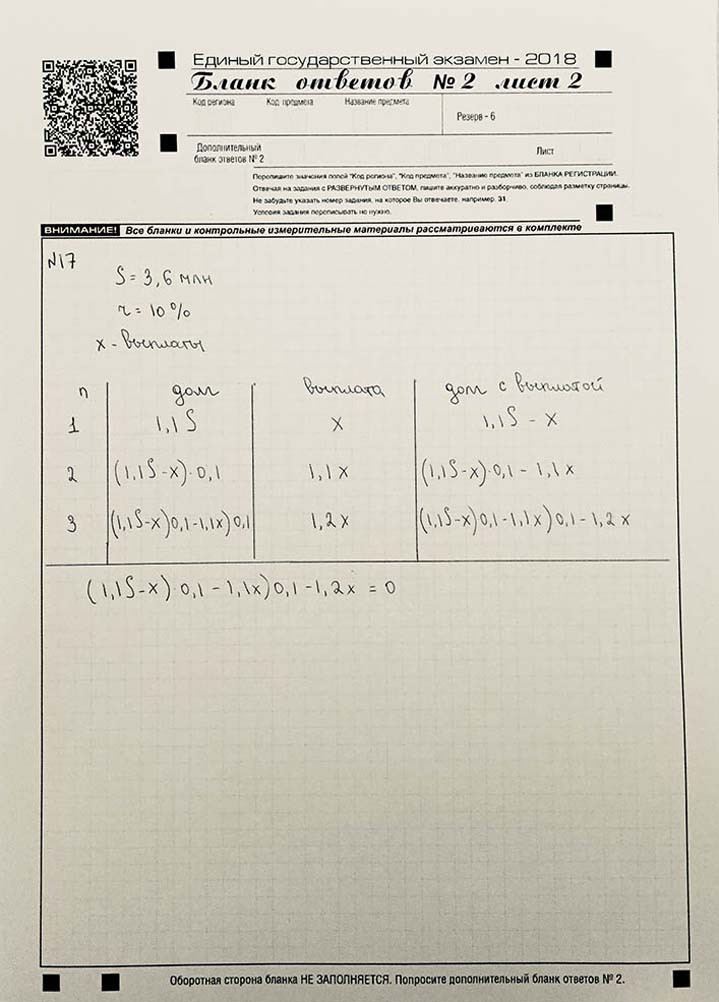 Единый государственный экзамен - 2018
Бланк ответов № 2 лист 2
Код региона Код предмета Название предмета
Резерв - 6
Дополнительный
бланк ответов № 2
Лист
Перепишите значения полей "Код региона", "Код предмета", "Название предмета" из БЛАНКА РЕГИСТРАЦИИ.
Отвечая на задания с РАЗВЕРНУТЫМ ОТВЕТОМ, пишите аккуратно и разборчиво, соблюдая разметку страницы.
Не забудьте указать номер задания, на которое Вы отвечаете, например, 31.
Условия задания переписывать не нужно.
ВНИМАНИЕ! Все бланки и контрольные измерительные материалы рассматриваются в комплекте
№17
S = 3,6 млн
r = 10 %
x - выплаты
n долг выплата долг с выплатой
1 1,1S x 1,1S - x
2 (1,1S-x)·0,1 1,1x (1,1S-x)·0,1 - 1,1x
3 (1,1S-x)0,1-1,1x)0,1 1,2x (1,1S-x)0,1-1,1x)0,1-1,2x
(1,1S-x)·0,1-1,1x)0,1-1,2x = 0
Оборотная сторона бланка НЕ ЗАПОЛНЯЕТСЯ. Попросите дополнительный бланк ответов № 2.